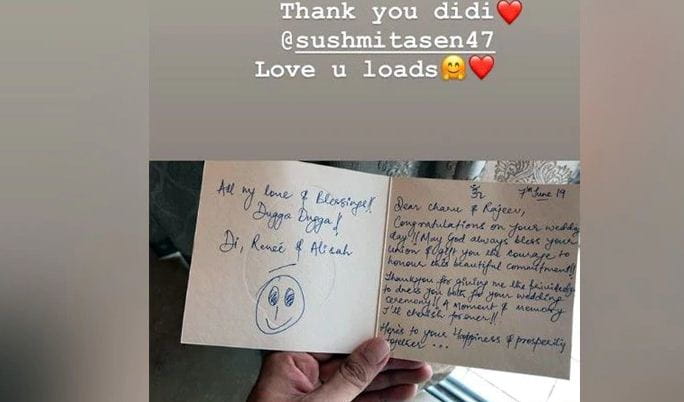 Thank you didi❤️
@sushmitasen47
Love u loads🤗❤️
All my love & Blessings!!
Dugga Dugga!
Di, Reneé & Alisah
ॐ
7th June 19
Dear Charu & Rajeev,
Congratulations on your wedding
day!! May God always bless your
union & gift you the courage to
honour this beautiful commitment!!
Thankyou for giving me the priviledge
to dress you both for your wedding
ceremony!! A moment & memory
I'll cherish forever!!
Here's to your Happiness & prosperity
together ...